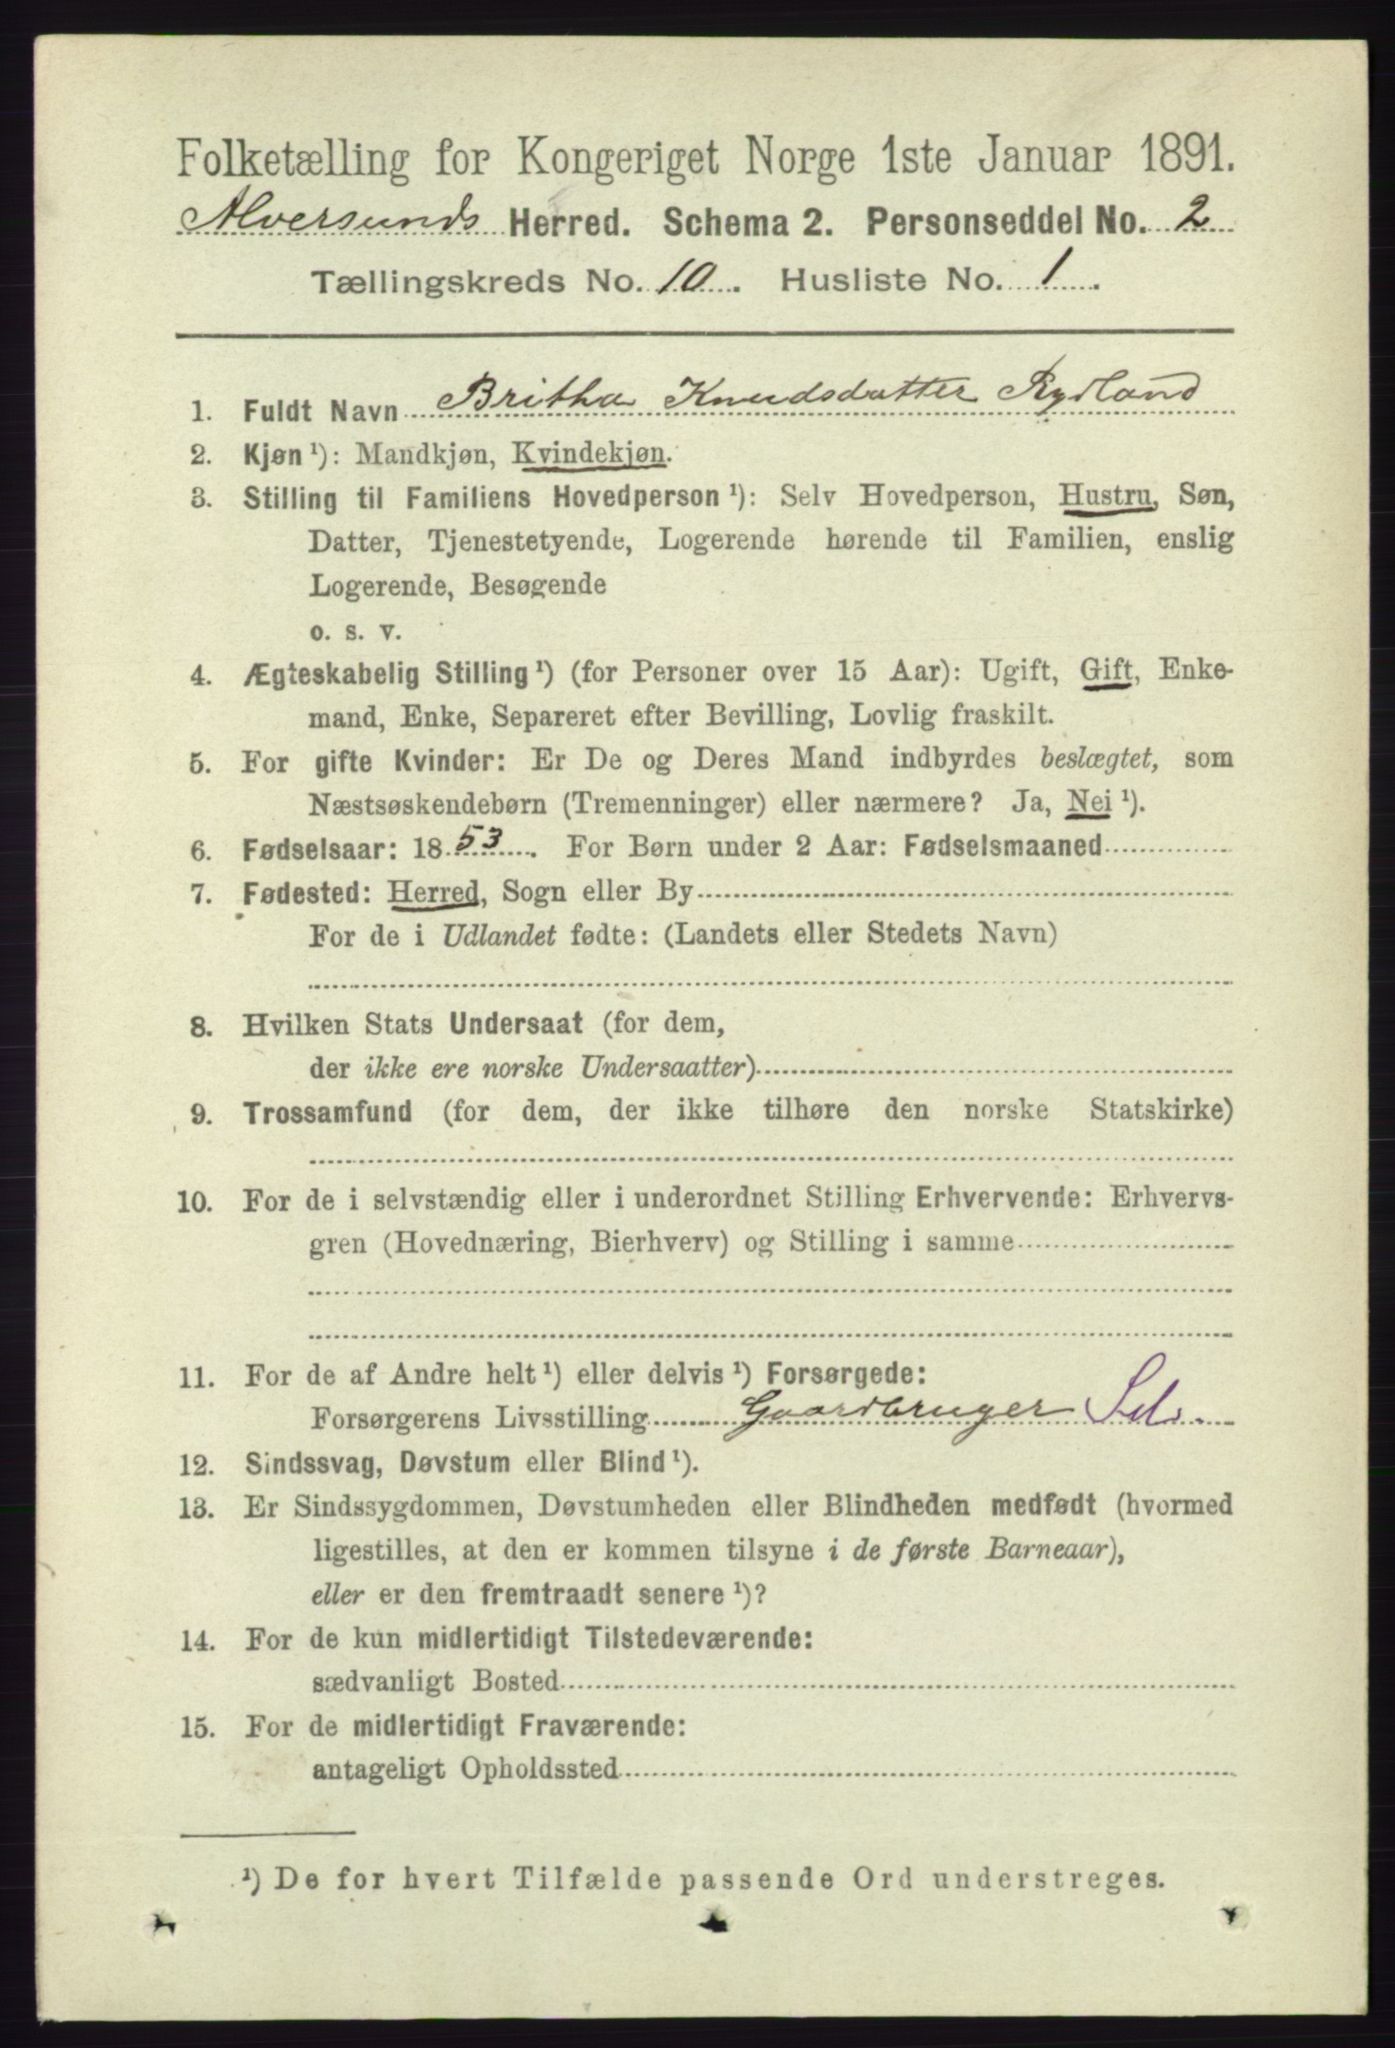 Folketælling for Kongeriget Norge 1ste Januar 1891.
Alversunds Herred. Schema 2. Personseddel No. 2
Tællingskreds No. 10. Husliste No. 1.
1. Fuldt Navn Britha Knudsdatter Rydland
2. Kjøn ¹): Mandkjøn, Kvindekjøn.
3. Stilling til Familiens Hovedperson ¹): Selv Hovedperson, Hustru, Søn,
Datter, Tjenestetyende, Logerende hørende til Familien, enslig
Logerende, Besøgende
o. s. v.
4. Ægteskabelig Stilling ¹) (for Personer over 15 Aar): Ugift, Gift, Enke-
mand, Enke, Separeret efter Bevilling, Lovlig fraskilt.
5. For gifte Kvinder: Er De og Deres Mand indbyrdes beslægtet, som
Næstsøskendebørn (Tremenninger) eller nærmere? Ja, Nei ¹).
6. Fødselsaar: 1853. For Børn under 2 Aar: Fødselsmaaned
7. Fødested: Herred, Sogn eller By
For de i Udlandet fødte: (Landets eller Stedets Navn)
8. Hvilken Stats Undersaat (for dem,
der ikke ere norske Undersaatter)
9. Trossamfund (for dem, der ikke tilhøre den norske Statskirke)
10. For de i selvstændig eller i underordnet Stilling Erhvervende: Erhvervs-
gren (Hovednæring, Bierhverv) og Stilling i samme
11. For de af Andre helt ¹) eller delvis ¹) Forsørgede:
Forsørgerens Livsstilling Gaardbruger
12. Sindssvag, Døvstum eller Blind ¹).
13. Er Sindssygdommen, Døvstumheden eller Blindheden medfødt (hvormed
ligestilles, at den er kommen tilsyne i de første Barneaar),
eller er den fremtraadt senere ¹)?
14. For de kun midlertidigt Tilstedeværende:
sædvanligt Bosted
15. For de midlertidigt Fraværende:
antageligt Opholdssted
¹) De for hvert Tilfælde passende Ord understreges.